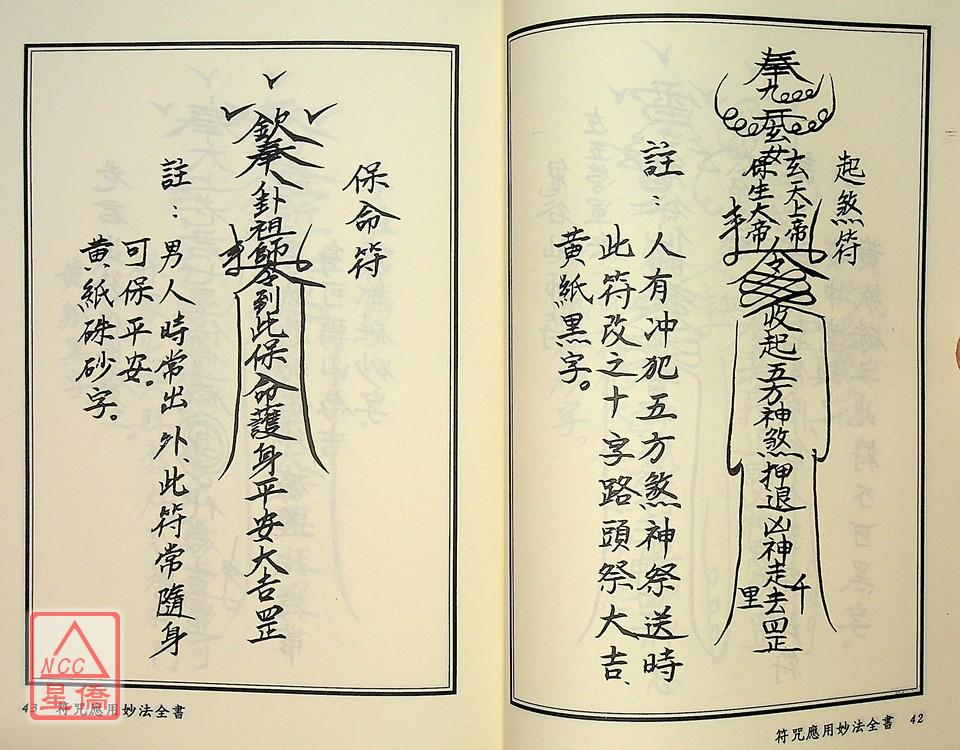 起煞符
奉
九
玄女
玄天上帝
保生大帝
令
收起五方神煞押退凶神走去千里罡
註：人有冲犯五方煞神祭送時
此符改之十字路頭祭大吉、
黄紙黑字。
符咒應用妙法全書 42
保命符
欽奉八卦祖師令到此保命護身平安大吉罡
註：男人時常出外、此符常隨身
可保平安。
黄紙硃砂字。
43 符咒應用妙法全書
NCC
星僑